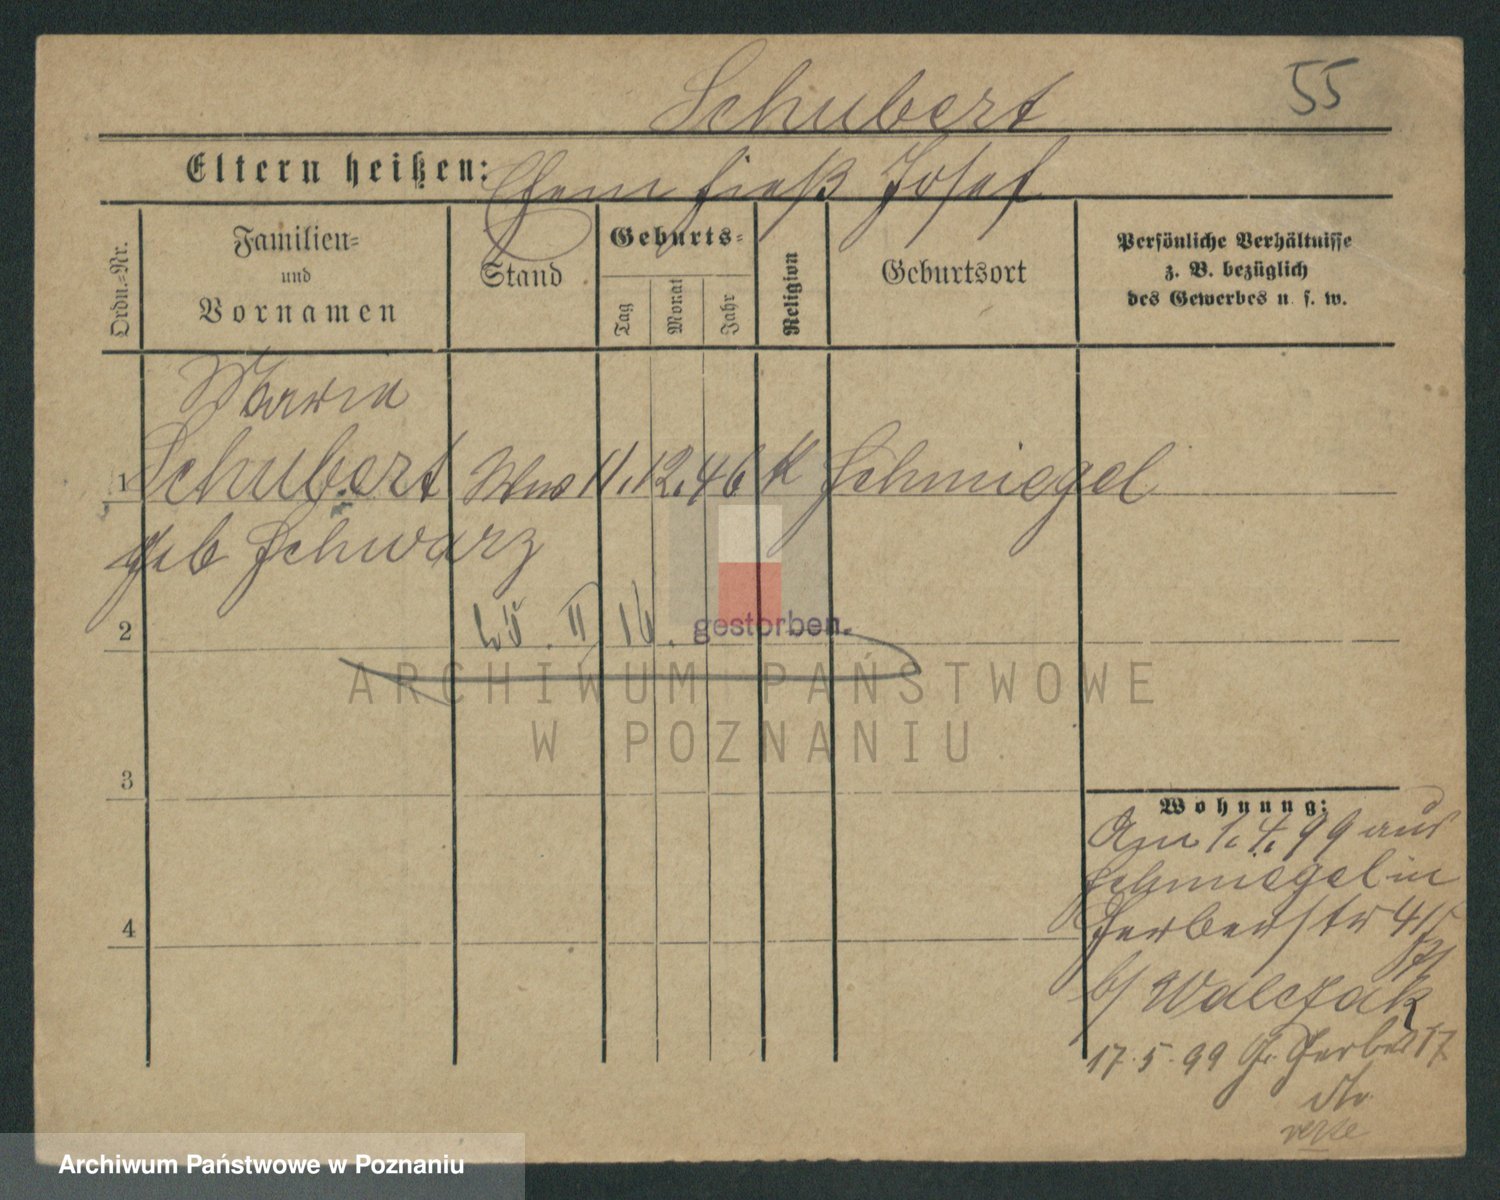 Schubert
55
Eltern heißen: Ehem hieß Josef
Ordn.-Nr.
Familien-
und
Vornamen
Stand
Geburts-
Tag
Monat
Jahr
Religion
Geburtsort
Persönliche Verhältnisse
z. B. bezüglich
des Gewerbes u. s. w.
Maria
1 Schubert Ww 11. 12. 46 K Schmiegel
geb Schwarz
2 25. II 16. gestorben.
ARCHIWUM PAŃSTWOWE
W POZNANIU
3
Wohnung:
Am 1. 4. 99 aus
Schmiegel in
4 Gerberstr 41/
b/ Walczak
17. 5. 99 Gr. Gerber 17
Archiwum Państwowe w Poznaniu